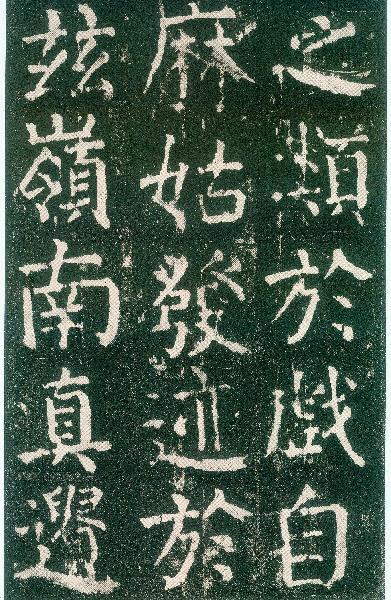 之類於戲自
麻姑發迹於
兹嶺南真遺